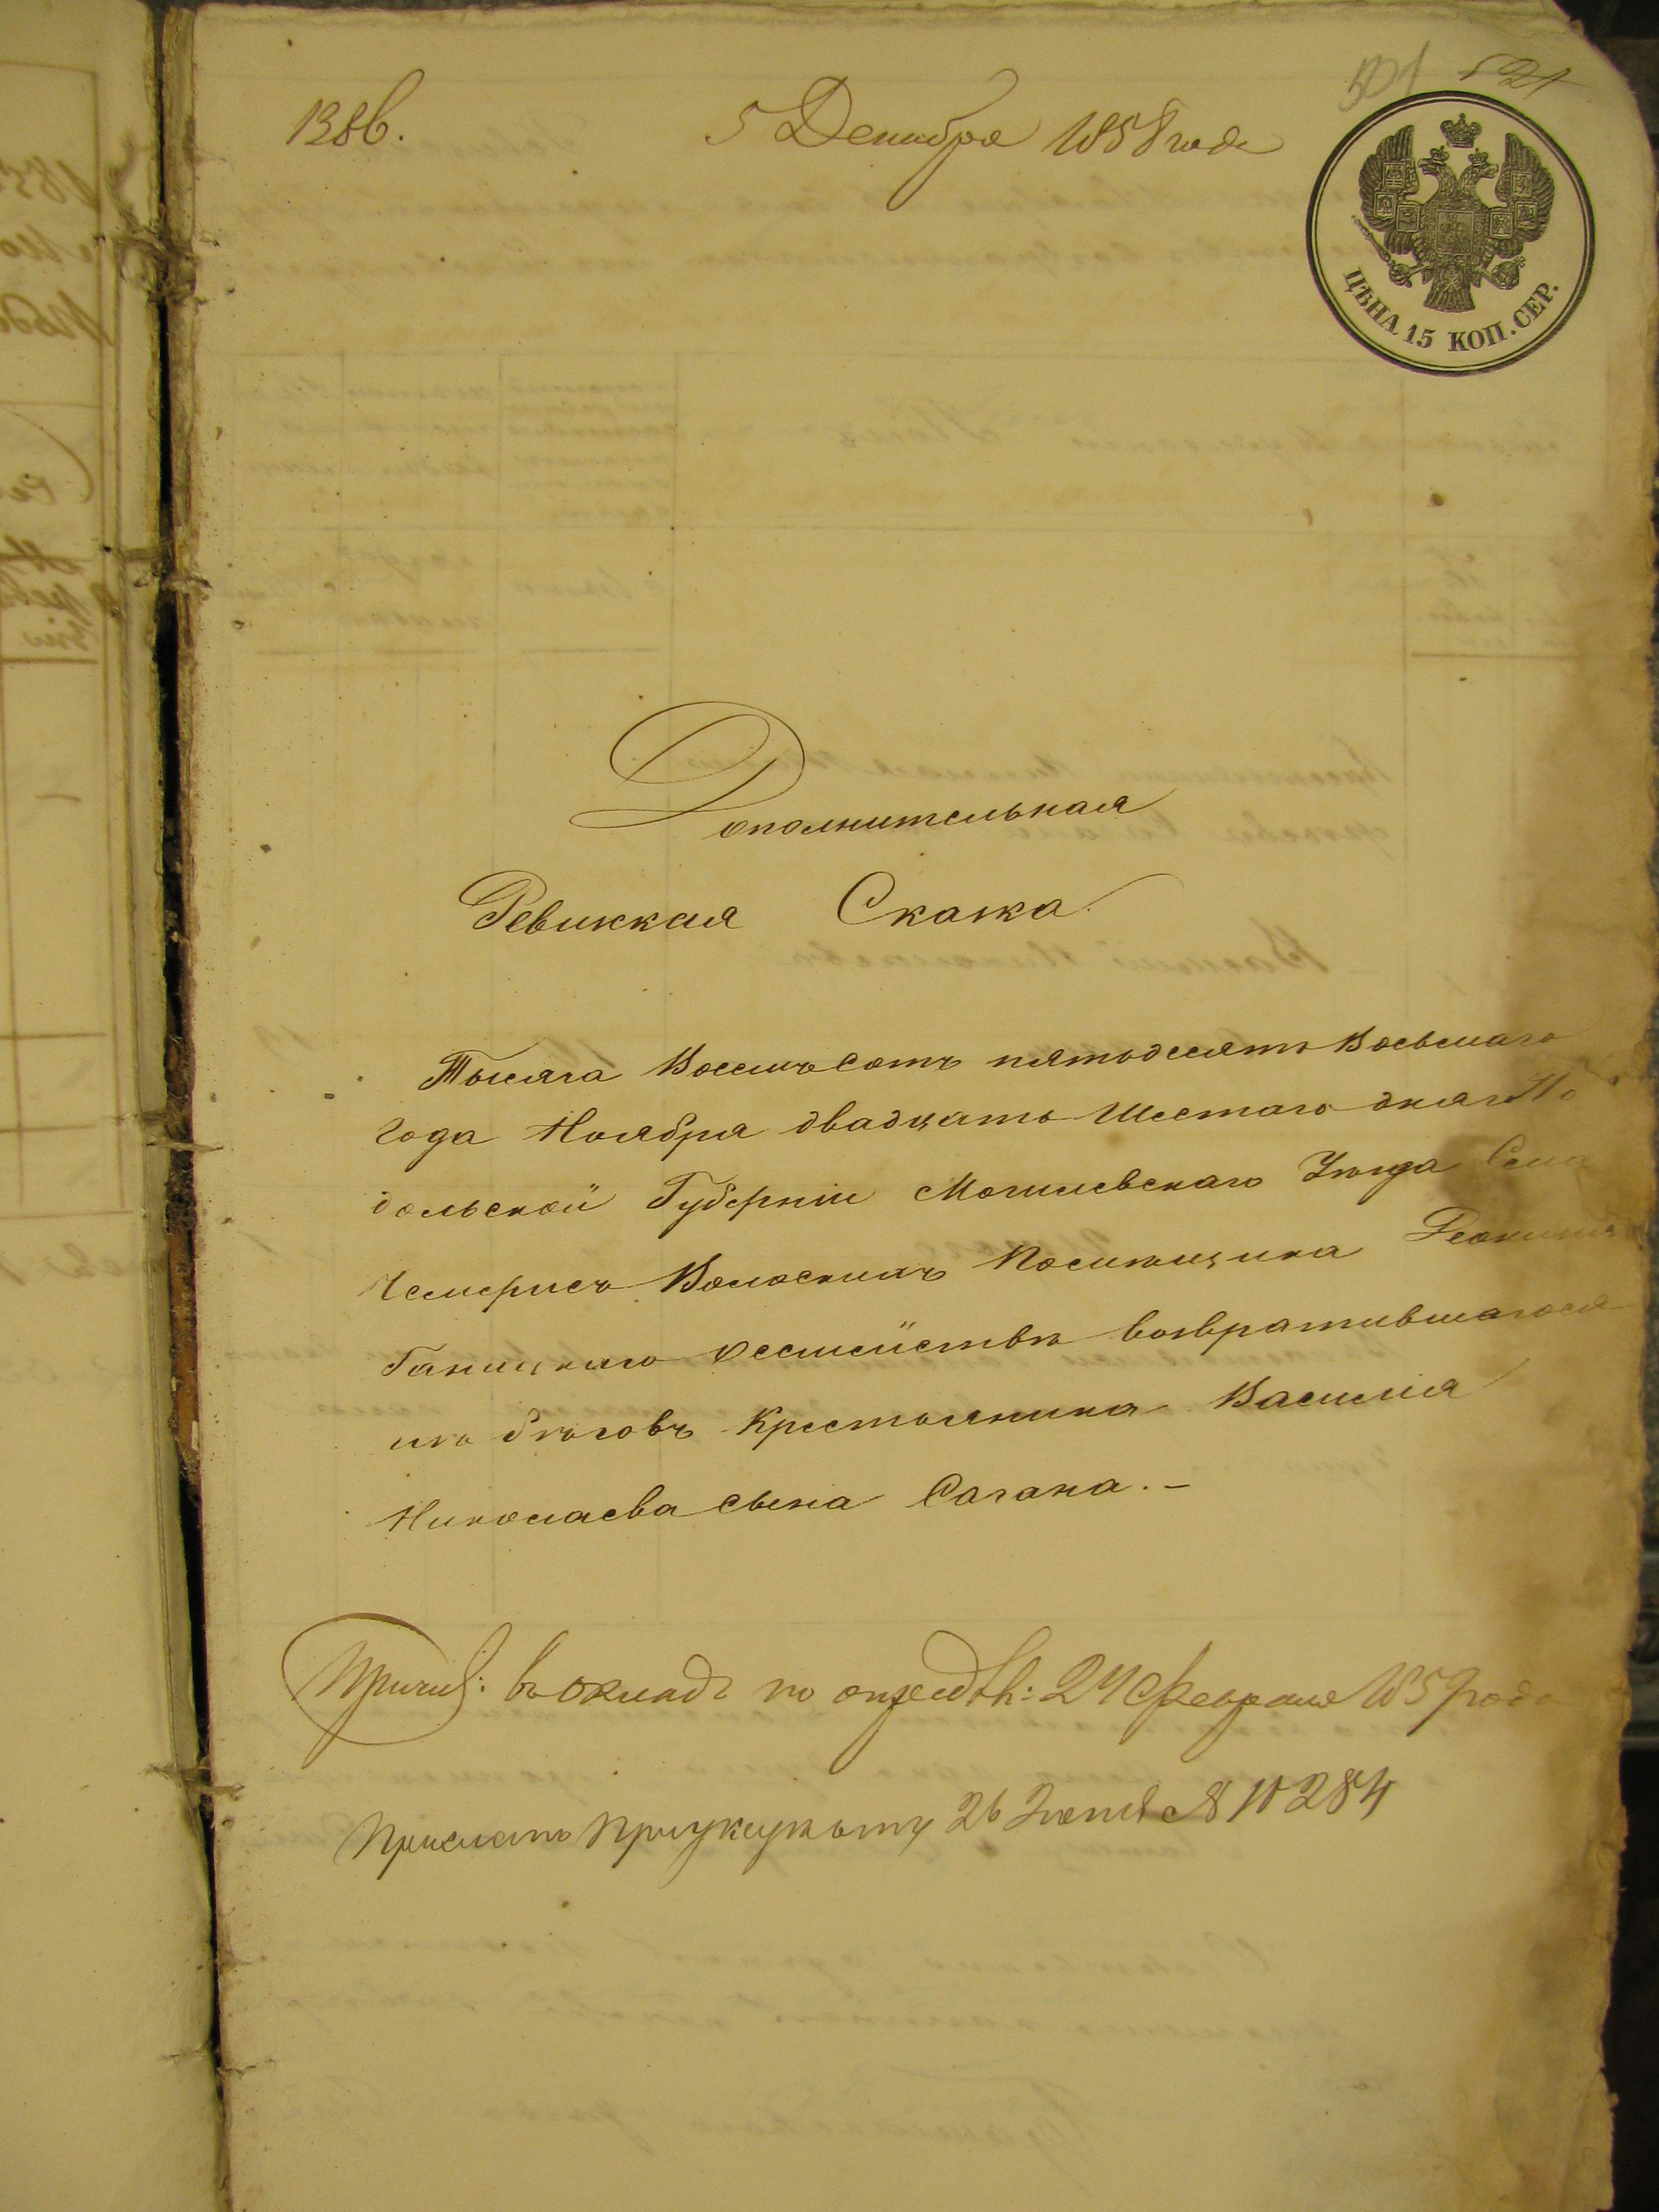 1386.
5 Декабря 1858 года
501 521
ЦѢНА 15 КОП. СЕР.
Дополнительная
Ревизская Сказка.
Тысяча Восемьсотъ пятьдесятъ Восьмаго
года Ноября двадцать Шестаго дня По
дольской Губерніи Могилевскаго Уѣзда Села
Чемерисъ Волоскихъ Помѣщика
Ганицкаго о семействѣ возвратившагося
изъ бѣговъ Крестьянина Василія
Николаева сына Сагана. –
Причис: въ окладъ по опредѣл: 24 Февраля 1859 года
26 Іюня № 10284